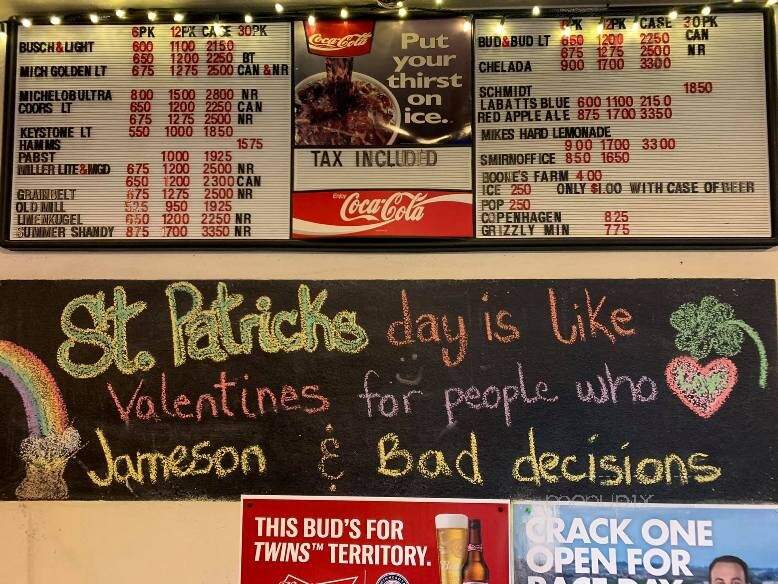 6PK 12PK CASE 30PK
BUSCH & LIGHT 600 1100 2150
650 1200 2250 BT
MICH GOLDEN LT 675 1275 2500 CAN & NR
MICHELOBULTRA 800 1500 2800 NR
COORS LT 650 1200 2250 CAN
675 1275 2500 NR
KEYSTONE LT 550 1000 1850
HAMMS 1575
PABST 1000 1925
MILLER LITE & MGD 675 1200 2500 NR
650 1200 2300 CAN
GRAINBELT 675 1275 2500 NR
OLD MILL 525 950 1925
LINENKUGEL 650 1200 2250 NR
SUMMER SHANDY 875 1700 3350 NR
Coca-Cola
Put
your
thirst
on
ice.
TAX INCLUDED
Enjoy
Coca-Cola
6PK 12PK CASE 30PK
BUD & BUD LT 650 1200 2250 CAN
675 1275 2500 NR
CHELADA 900 1700 3300
SCHMIDT 1850
LABATTS BLUE 600 1100 2150
RED APPLE ALE 875 1700 3350
MIKES HARD LEMONADE
900 1700 3300
SMIRNOFF ICE 850 1650
BOONE'S FARM 4.00
ICE 250 ONLY $1.00 WITH CASE OF BEER
POP 250
COPENHAGEN 825
GRIZZLY MIN 775
St. Patricks day is like
Valentines for people who
Love
Jameson & Bad decisions
THIS BUD'S FOR
TWINS™ TERRITORY.
CRACK ONE
OPEN FOR
RACE DAY